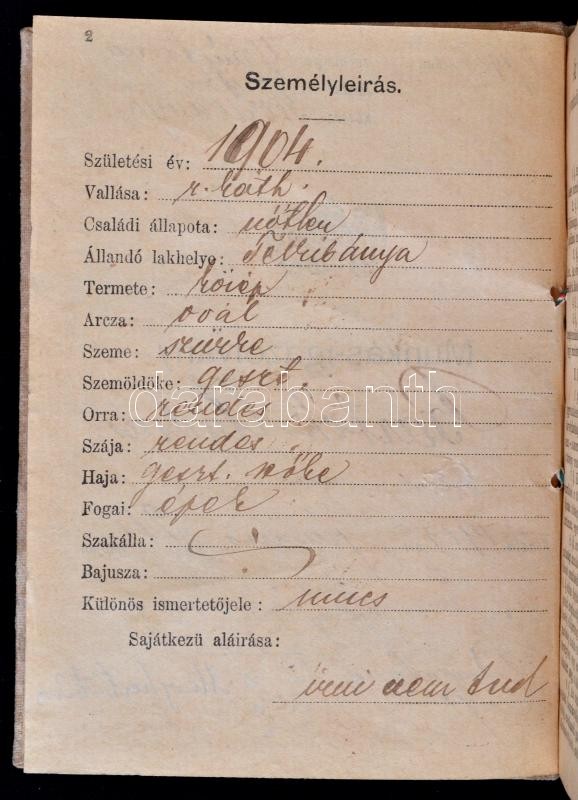 2
Személyleirás.
Születési év: 1904.
Vallása: r. kath.
Családi állapota: nőtlen
Állandó lakhelye: Telkibánya
Termete: közép
Arcza: ovál
Szeme: szürke
Szemöldöke: geszt.
Orra: rendes
Szája: rendes
Haja: geszt. szőke
Fogai: épek
Szakálla:
Bajusza:
Különös ismertetőjele: nincs
Sajátkezü aláirása:
irni nem tud
darabanth